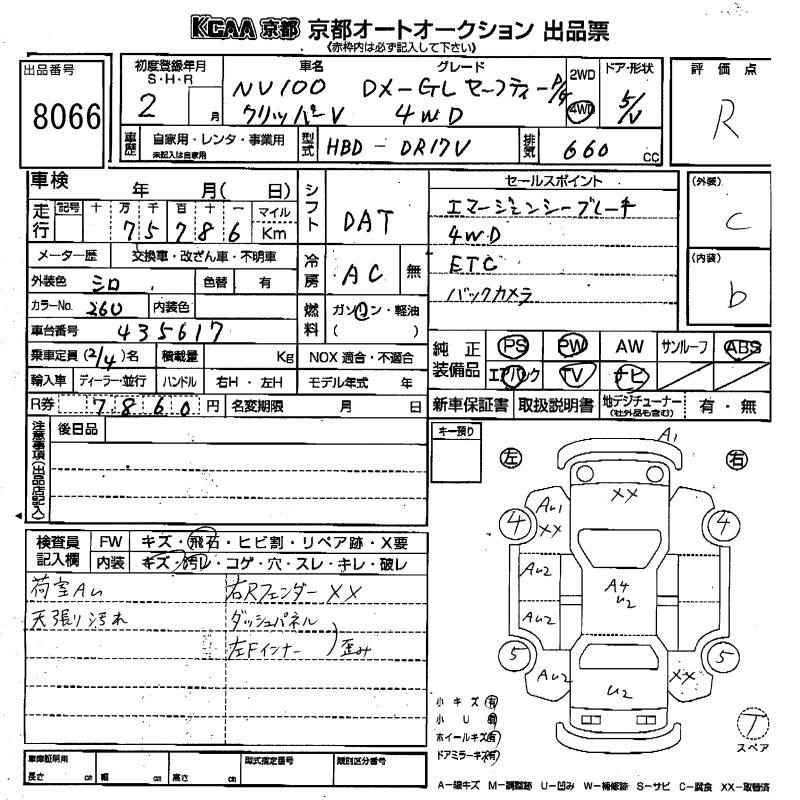 KCAA 京都 京都オートオークション 出品票
《赤枠内は必ず記入して下さい》
出品番号
8066
初度登録年月
S・H・R
2 月
車名
NV100
クリッパーV
グレード
DX-GL セーフティーP/g
4WD
2WD
4WD
ドア・形状
5/V
評価点
R
車歴
自家用・レンタ・事業用
未記入は自家用
型式
HBD-DR17V
排気
660 cc
車検 年 月( 日)
走行
記号 十 万 千 百 十 一 マイル
7 5 7 8 6 Km
メーター歴 交換車・改ざん車・不明車
外装色 シロ 色替 有
カラーNo. 26U 内装色
車台番号 435617
乗車定員 (2/4)名 積載量 Kg NOX 適合・不適合
輸入車 ディーラー・並行 ハンドル 右H・左H モデル年式 年
R券 7 8 6 0 円 名変期限 月 日
シフト
DAT
冷房
AC 無
燃料
ガソリン・軽油
( )
セールスポイント
エマージェンシーブレーキ
4WD
ETC
バックカメラ
(外装)
C
(内装)
b
純正装備品
PS PW AW サンルーフ ABS
エアバック TV ナビ
新車保証書 取扱説明書 地デジチューナー
(社外品も含む) 有・無
注意事項(出品店記入)
後日品
キー預り
検査員記入欄
FW キズ・飛石・ヒビ割・リペア跡・X要
内装 キズ・汚レ・コゲ・穴・スレ・キレ・破レ
荷室AU 右Rフェンダー XX
天張り汚れ ダッシュパネル
左Fインナー )歪み
左 右
A1
XX
AU1
XX
4 4
AU2
A4
U2
AU2
5 5
AU2
U2
XX
小キズ 有
小U
ホイールキズ 有
ドアミラーキズ 有
T
スペア
車庫証明用
長さ cm 幅 cm 高さ cm
型式指定番号
類別区分番号
A-線キズ M-調整跡 U-凹み W-補修跡 S-サビ C-腐食 XX-取替済